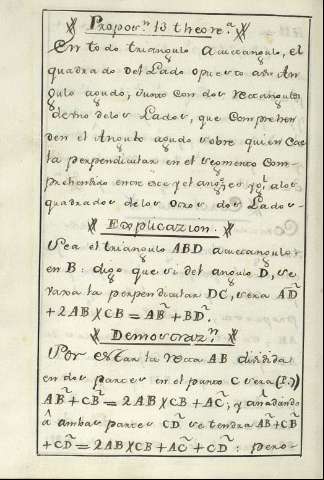 Propor.n 13 theore.a
En todo triangulo acuteangulo, el
quadrado del Lado opuesto a un An
gulo agudo; junto con dos rectangulos
de los Lados, que Comprehen
den el Angulo agudo sobre quien cae
la perpendicular en el segmento Com-
prehendido entre ese y el ang.o es yg.l a los
quadrados de los otros dos Lados-
Explicazion.
Sea el triangulo ABD acuteangulo
en B: digo que si del angulo D, se
saxa la perpendicular DC, sera AD²
+ 2AB × CB = AB² + BD².
Demostraz.n
Por estar la recta AB dividida
en dos partes en el punto C sera (P. 7)
AB² + CB² = 2AB × CB + AC²; y añadiendo
â ambas partes CD² se tendra AB² + CB²
+ CD² = 2AB × CB + AC² + CD²: pero-